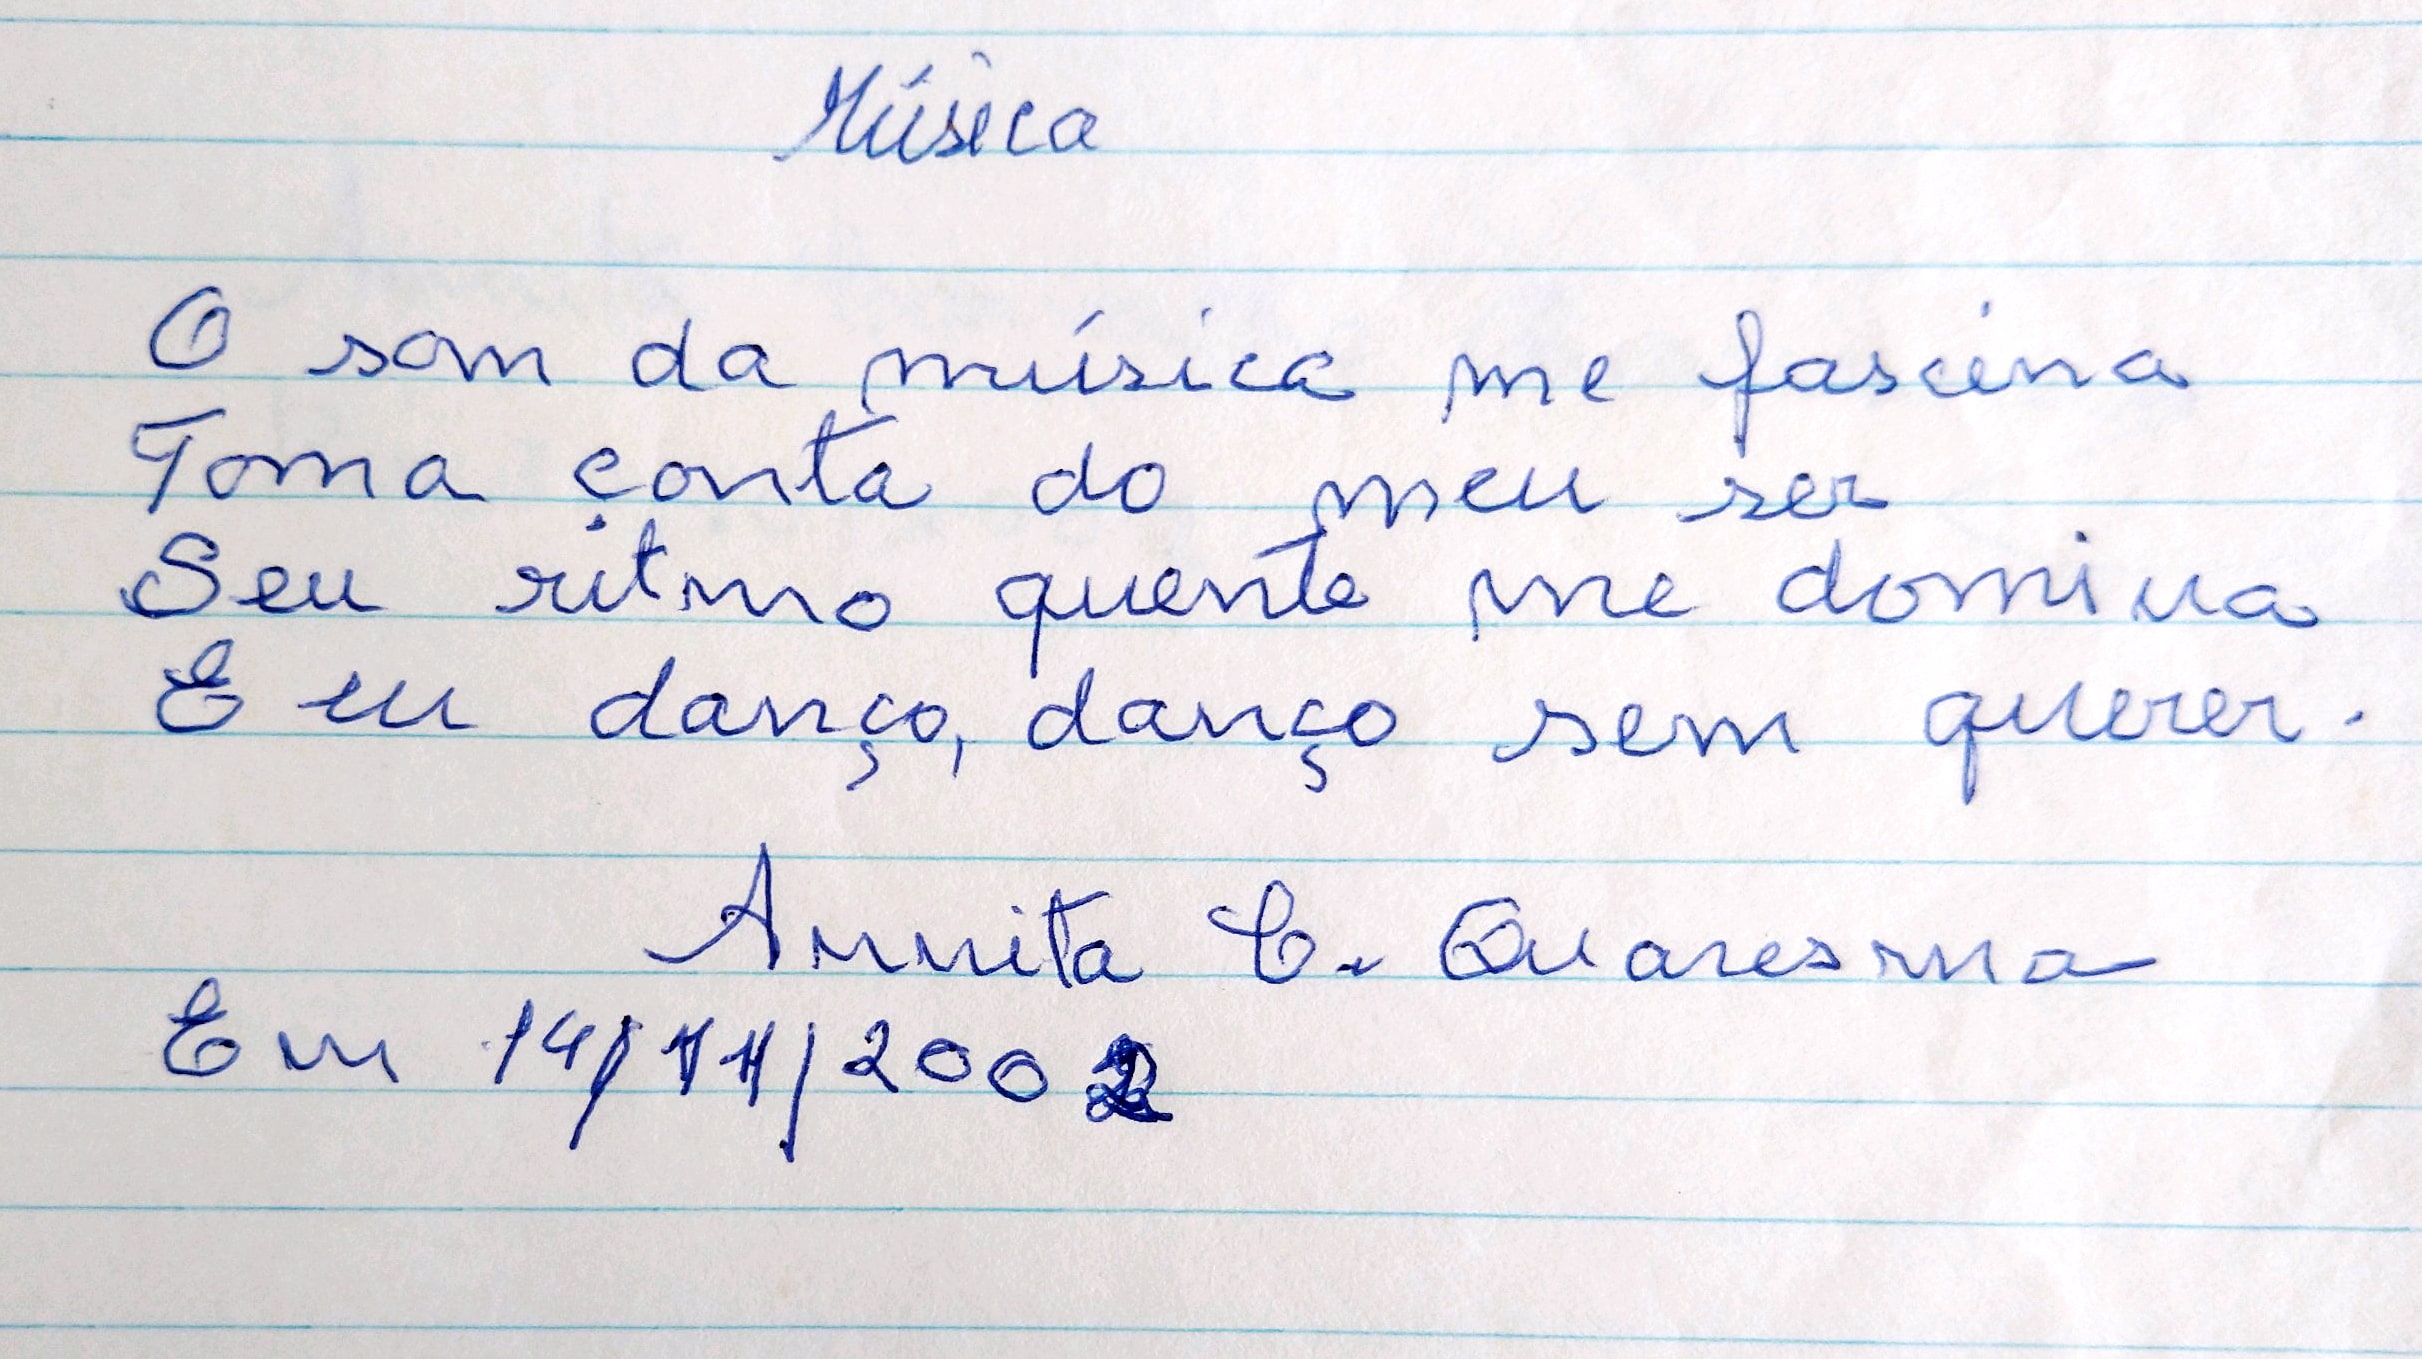 Música
O som da música me fascina
Toma conta do meu ser
Seu ritmo quente me domina
E eu danço, danço sem querer.
Annita C. Quaresma
Em 14/11/2002